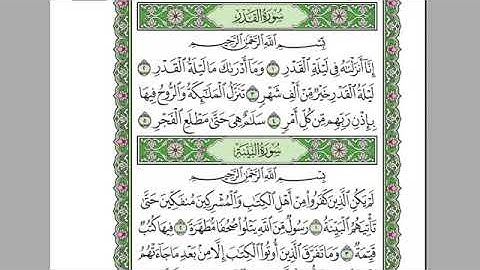 سُورَةُ الْقَدْرِ
بِسْمِ اللَّهِ الرَّحْمَٰنِ الرَّحِيمِ
إِنَّا أَنزَلْنَٰهُ فِى لَيْلَةِ الْقَدْرِ ١ وَمَا أَدْرَىٰكَ مَا لَيْلَةُ الْقَدْرِ ٢
لَيْلَةُ الْقَدْرِ خَيْرٌ مِّنْ أَلْفِ شَهْرٍ ٣ تَنَزَّلُ الْمَلَٰٓئِكَةُ وَالرُّوحُ فِيهَا
بِإِذْنِ رَبِّهِم مِّن كُلِّ أَمْرٍ ٤ سَلَٰمٌ هِىَ حَتَّىٰ مَطْلَعِ الْفَجْرِ ٥
سُورَةُ الْبَيِّنَةِ
بِسْمِ اللَّهِ الرَّحْمَٰنِ الرَّحِيمِ
لَمْ يَكُنِ الَّذِينَ كَفَرُوا مِنْ أَهْلِ الْكِتَٰبِ وَالْمُشْرِكِينَ مُنفَكِّينَ حَتَّىٰ
تَأْتِيَهُمُ الْبَيِّنَةُ ١ رَسُولٌ مِّنَ اللَّهِ يَتْلُوا صُحُفًا مُّطَهَّرَةً ٢ فِيهَا كُتُبٌ
قَيِّمَةٌ ٣ وَمَا تَفَرَّقَ الَّذِينَ أُوتُوا الْكِتَٰبَ إِلَّا مِنۢ بَعْدِ مَا جَآءَتْهُمُ